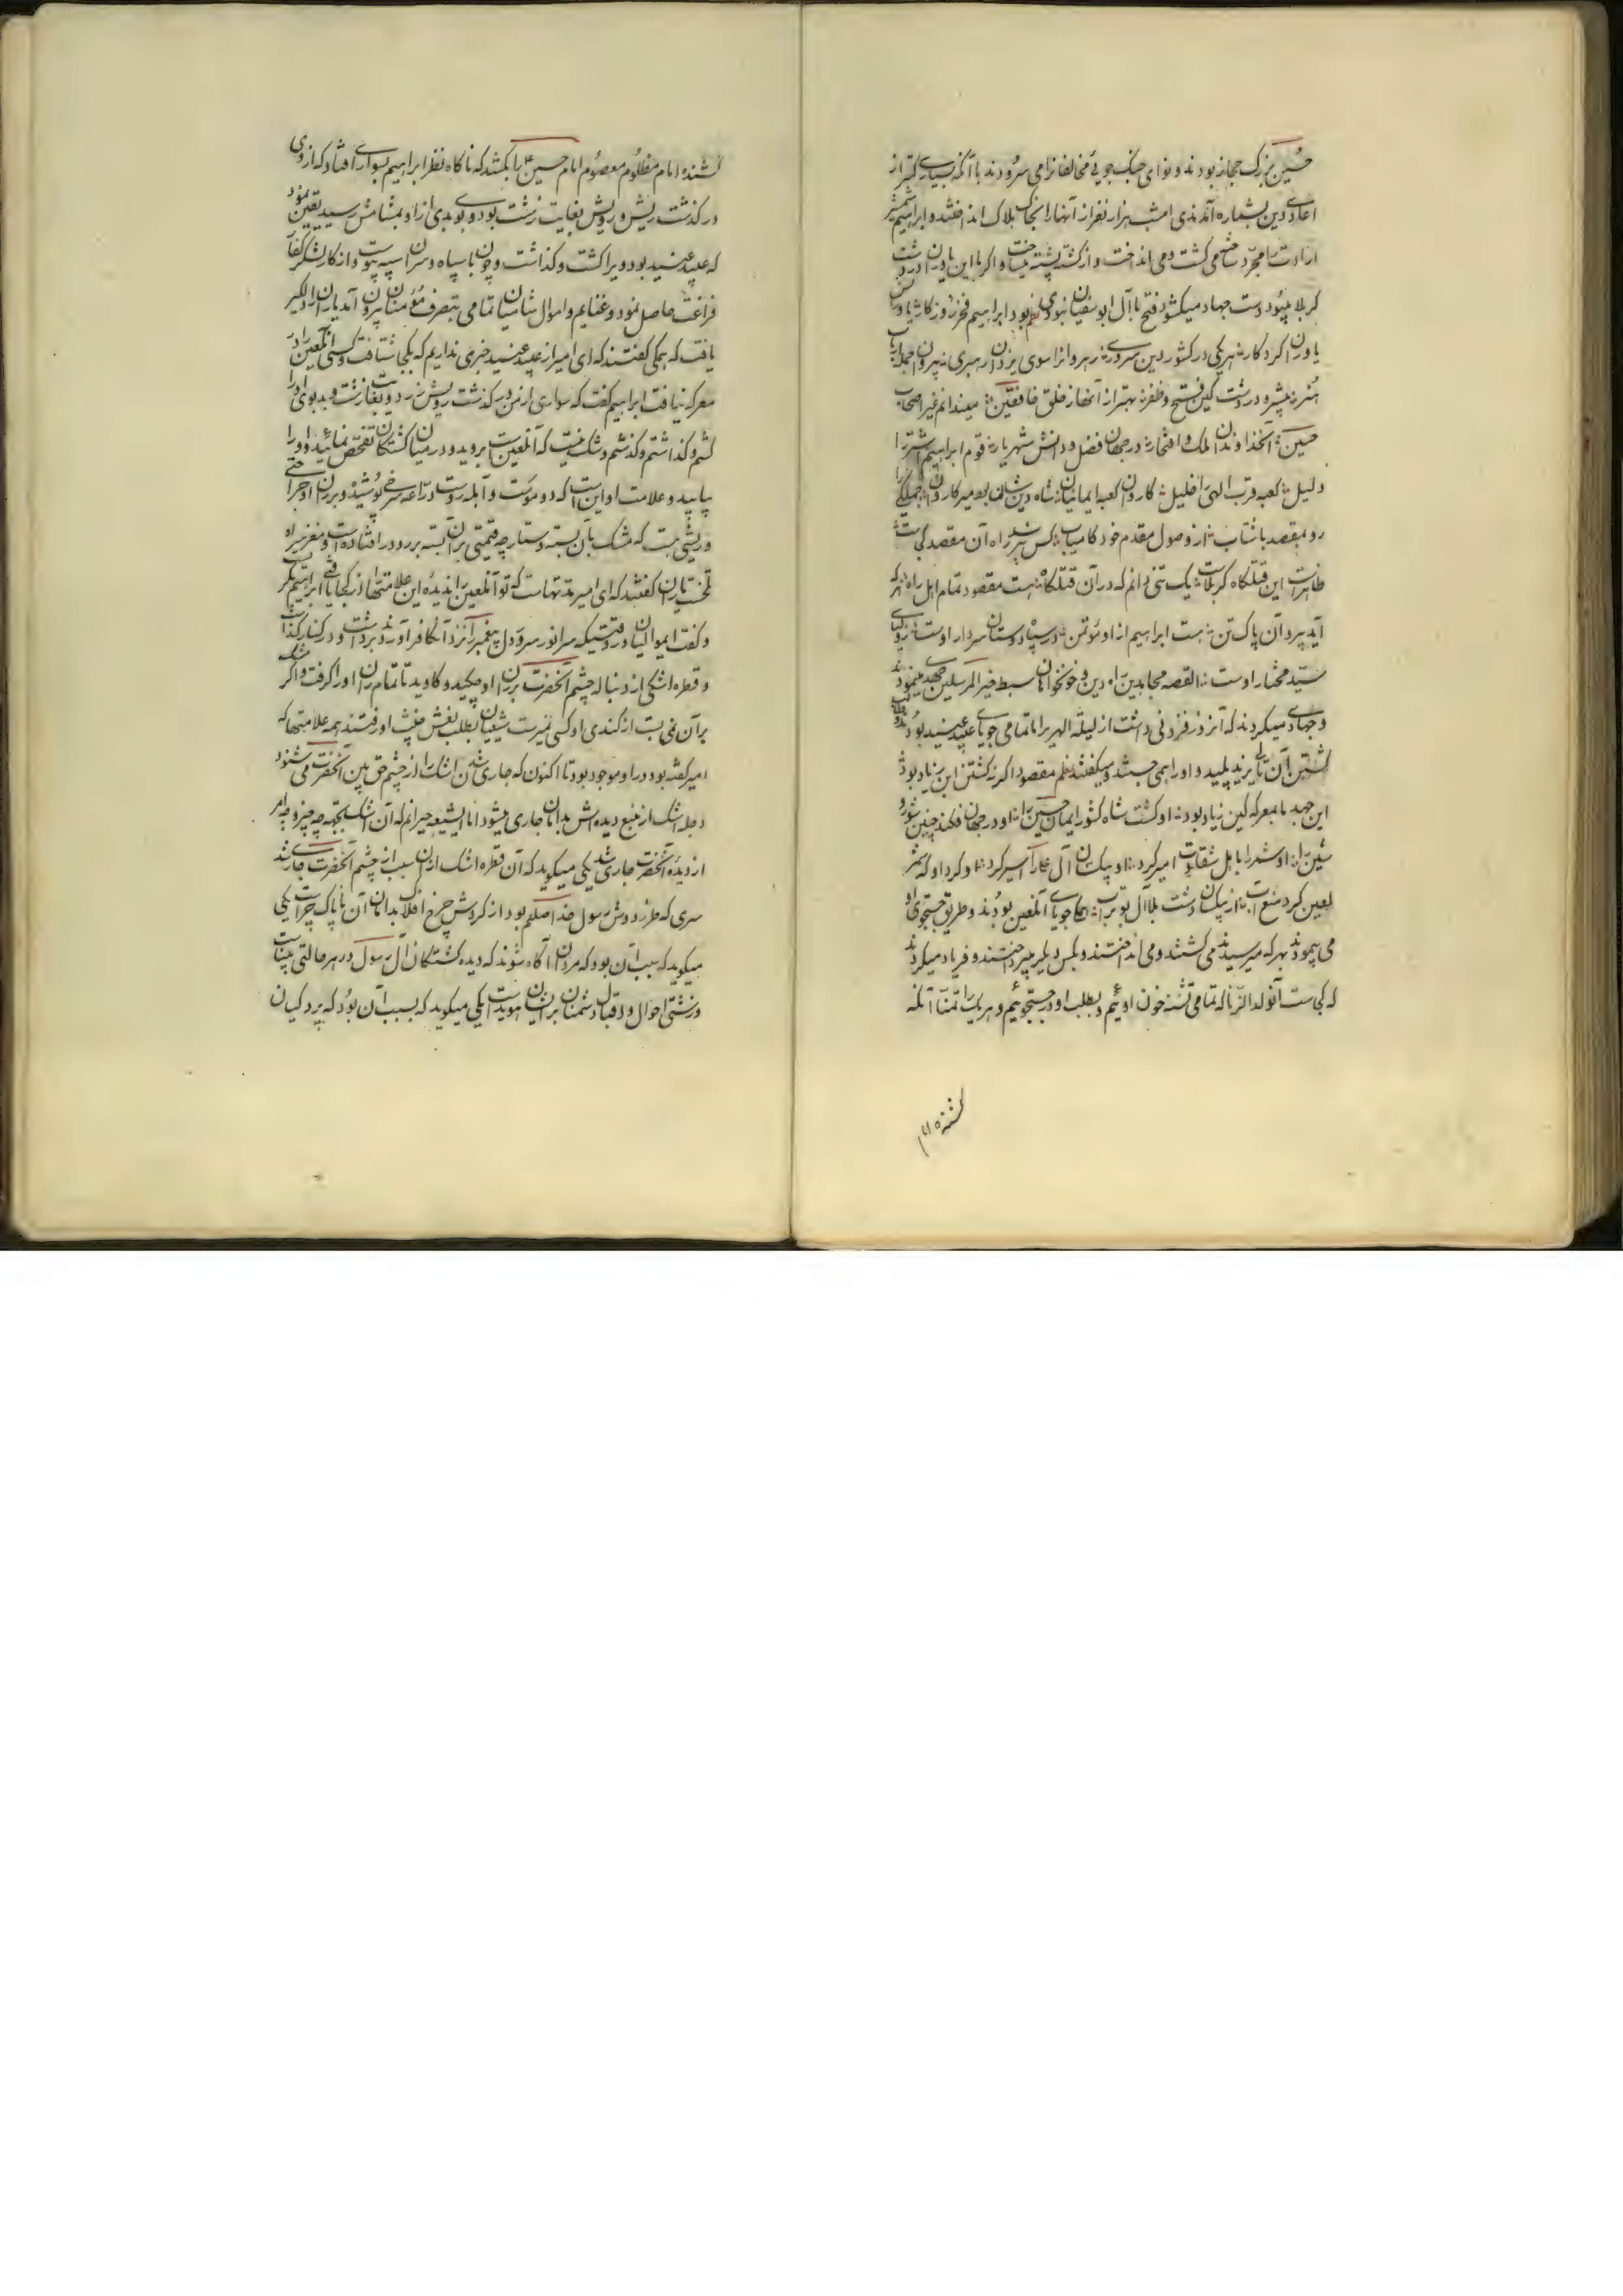 حسین بزرگ حجاز بودند و نوای جنگ جوئی مخالفانرا می سرودند با آنکه بسیاری کمتر از
اعادی دین بشماره آمدندی امشب هزار نفر از آنها را بخاک هلاک انداختند و ابراهیم شمشیر
ارادت را مجرد ساخته می کشت و می انداخت و از کشته پشته میساخت و اگر با این یاوران در دشت
کربلا میبود دست جهاد میکشود فتح با آل ابوسفیان نبودی نظم بود ابراهیم فخر روزگار
یاوران کردگار هر یکی در کشور دین سروری رهروانرا سوی یزدان رهبری پیروان
هنر پیشرو در دشت کین فتح و ظفر بهتر از آنها ز خلق خافقین میندانم غیر اصحاب
حسین آنخداوندان ملک و افتخار در جهان فضل و دانش شهریار قوم ابراهیم اشتر را
دلیل کعبه قرب الهی را خلیل کاروان کعبه ایمانیان شاه دین شان بود میر کاروان جملگی
رو بمقصد با شتاب از وصول مقدم خود کامیاب کس راه آن مقصد کجاست
ظاهرست این قتلگاه کربلاست یک تنی دانم که در آن قتلگاه هست مقصود تمام اهل راه هر که
آید پیرو آن پاک تن هست ابراهیم از او مؤتمن در سپاه دوستان سردار اوست
سید مختار اوست القصه مجاهدین راه دین و خونخواهان سبط خیر المرسلین جهدی مینمودند
و جهادی میکردند که آنروز فزونی داشت از لیلة الهریر اما تمامی جویای عبید عنید بودند
کشتن آن ثانی یزید پلید و او را همی جستند و میگفتند نظم مقصود اگر نه کشتن ابن زیاد بود
این جهد ما بمعرکه کین زیاد بود او کشت شاه کشور ایمان حسین را او در جهان فکند چنین شور و
شین را او شمر را باهل شقاوت امیر کرد او بیکسان آل عبا را اسیر کرد او کرد او که شمر
لعین کرد منع آب از بیکسان دشت بلا آل بوتراب همه جویای آنلعین بودند و طریق جستجوی او
می پیمودند بهر که میرسیدند می کشتند و می انداختند و بکس دیگر میپرداختند و فریاد میکردند
که کجاست آنولد الزنا که تمامی تشنه خون اوئیم و بطلب او در جستجوئیم و هر یک را تمنا آنکه
کشنده امام
کشنده امام مظلوم معصوم امام حسین را بکشد که ناگاه نظر ابراهیم بسواری افتاد که از روی
در گذشت ریش و رویش بغایت زشت بود و بوی بدی از او بمشامش رسید یقین نمود
که عبید عنید بود ویرا کشت و گذاشت و چون با سپاه و سران سپه پیوست و از کار لشکر کفار
فراغت حاصل نمود و غنایم و اموال شامیان تمامی بتصرف مؤمنان بیرون آمد یاران را دلگیر
یافت که همگی گفتند که ای امیر از عبید عنید خبری نداریم که بکجا شتافت و کسی آنلعین را در
معرکه نیافت ابراهیم گفت که سواری از من در گذشت رویش زرد و بغایت زشت و بدبوی او را
کشتم و گذاشتم و گذشتم و شک نیست که آنلعین است بروید و در میان کشتگان تفحص نمائید و او را
بیابید و علامت او اینست که دو موست و آبله روست دراعه سرخ پوشیده و بر ران او جراحتی
و ریشی هست که مشک بآن بسته و دستارچه قیمتی بر آن بسته بر رو در افتاده است و مغفر سیاه
یاران گفتند که ای امیر مدتهاست که تو آنلعین را ندیدی این علامتها از کجا یافتی ابراهیم بگریست
و گفت ای موالیان در وقتیکه سر انور سرور دل پیغمبر را نزد آن کافر آوردند برداشت و در کنار گذاشت
و قطره اشکی از دنباله چشم آنحضرت بر ران او چکید و کاوید تا تمام ران او را گرفت و اگر مشک
بر آن نمی بست از گندی او کسی نمیزیست شیعیان بطلب نعش خبیث او رفتند همه علامتها که
امیر گفته بود در او موجود بود تا اکنون که جاری شدن اشک را از چشم حق بین آنحضرت می شنود
دجله اشک از منبع دیده اش بدامان جاری میشود اما ای شیعه حیرانم که آن اشک بجهة چه چیز و چه امر
از دیده آنحضرت جاری شد یکی میگوید که آن قطره اشک از آن سبب از چشم آنحضرت جاری شد
سری که طراز دوش رسول خدا صلعم بود از گردش چرخ افلاک بدامان آن ناپاک چراست یکی
میگوید که سبب آن بود که مردمان آگاه شوند که دیده کشتگان آل رسول در هر حالتی بیناست
و زشتی احوال و اقبال دشمنان بر ایشان هویداست یکی میگوید که بسبب آن بود که پردگیان